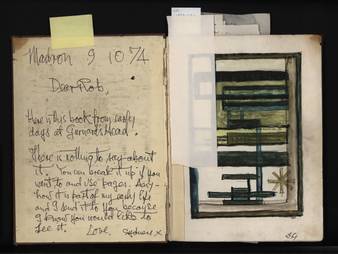 Madron 9 10 74
Dear Rob,
Here is this book from early
days at Gurnards Head.
There is nothing to say about
it. You can break it up if you
want to and use pages. Any-
how it is part of my early life
and I send it to you because
I know you would like to
see it. Love,